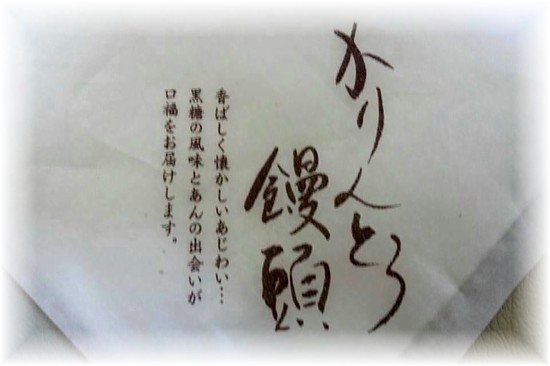 かりんとう
饅頭
香ばしく懐かしいあじわい…
黒糖の風味とあんの出会いが
口福をお届けします。